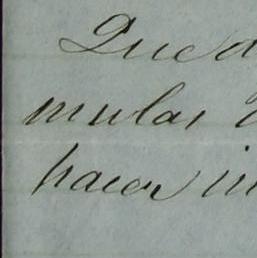 Que d
mulas
hacer in